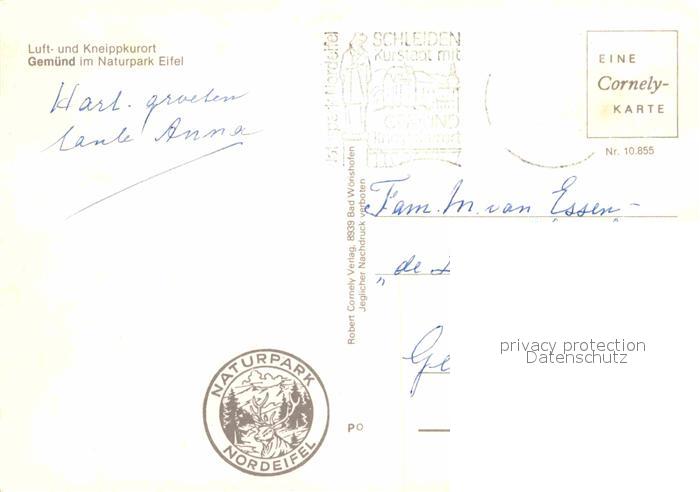 Luft- und Kneippkurort
Gemünd im Naturpark Eifel
Hart. groeten
tante Anna
SCHLEIDEN
Kurstadt mit
GEMÜND
Kneippkurort
EINE
Cornely-
KARTE
Nr. 10.855
Robert Cornely Verlag, 8939 Bad Wörishofen
Jeglicher Nachdruck verboten
Fam. M. van Essen -
"de
Ge
privacy protection
Datenschutz
NATURPARK
NORDEIFEL
PO